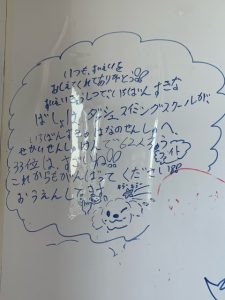 いつも、すいえいを
おしえてくれてありがとう
すいえいきょうしつで、いちばん すきな
ばしょは、ダッシュ スイミングスクールが
いちばんすき。はなのせんしゅへ、
せかいせんしゅけんで62人の
33位は すごいね
これからもがんばって ください
おうえんしてます。